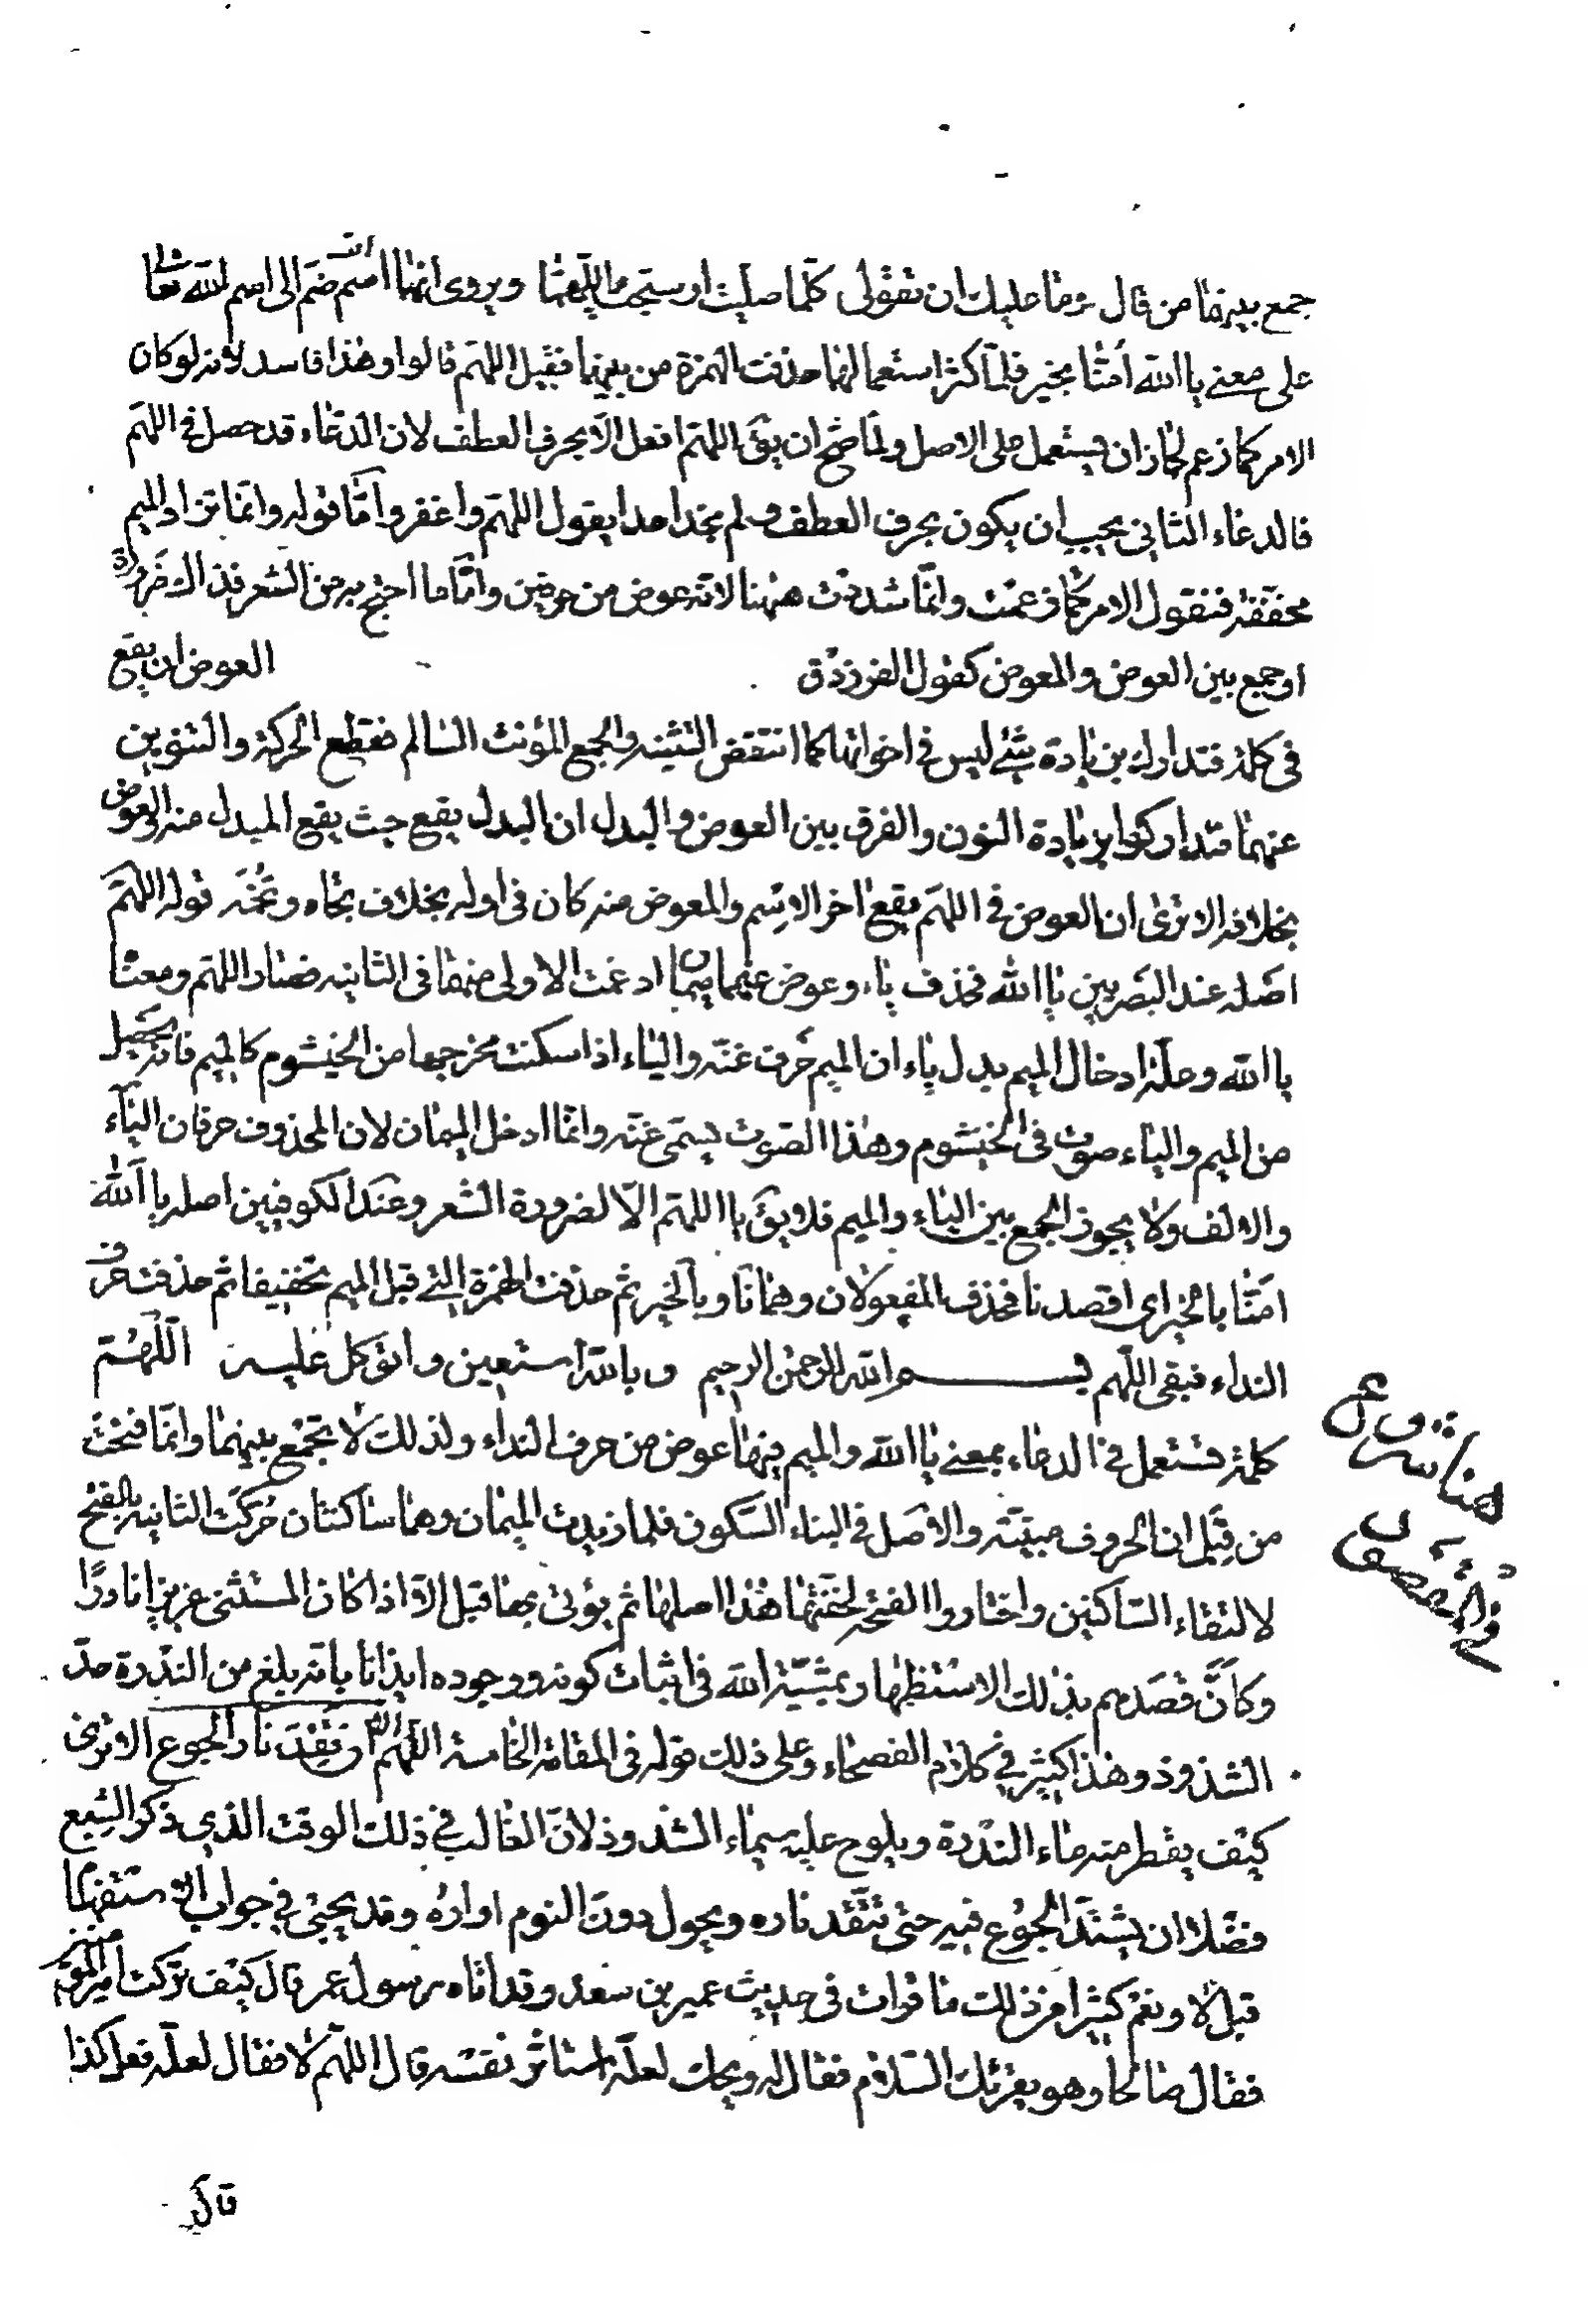 جمع بينهما من قال وما عليك ان تقولى كلما صليت او سبحت يا اللهما ويروى انها امم ضم الى اسم الله تعا
على معنى يا الله امنا بخير فلما كثر استعمالها حذفت الهمزة من بينهما فقيل اللهم قالوا وهذا فاسد لانه لو كان
الامر كما زعم لجاز ان يستعمل على الاصل ولما صح ان يق اللهم افعل الا بحرف العطف لان الدعاء قد حصل فى اللهم
فالدعاء الثانى يجب ان يكون بحرف العطف ولم نجد احدا يقول اللهم واغفر واما قوله وانما تزاد الميم
مخففة فنقول الامر كما زعمت وانما شددت ههنا لانه عوض من حرفين واما ما احتج به من الشعر فذا لضرورة
او جمع بين العوض والمعوض كقول الفرزدق العوض ان يقع
فى كلمة فتدارك بزيادة شئ ليس فى اخواتها كما انتقض التثنيه والجمع المؤنث السالم فقطع الحركة والتنوين
عنهما فتداركوا بزيادة النون والفرق بين العوض والبدل ان البدل يقع حيث يقع المبدل منه والعوض
بخلافه الا ترى ان العوض فى اللهم يقع اخر الاسم والمعوض منه كان فى اوله بخلاف تجاه وتخمه قوله اللهم
اصله عند البصريين يا الله فحذف ياء وعوض عنهما ميمان ادغمت الاولى منهما فى الثانيه فصار اللهم ومعناه
يا الله وعلة ادخال الميم بدل ياء ان الميم حرف غنه والياء اذا سكنت مخرجها من الخيشوم كالميم فانه يحصل
من الميم والياء صوت فى الخيشوم وهذا الصوت يسمى غنه وانما ادخل الميمان لان المحذوف حرفان الياء
والالف ولا يجوز الجمع بين الياء والميم فلا يق يا اللهم الا لضرورة الشعر وعند الكوفيين اصله يا الله
امنا بالخير اى اقصدنا فحذف المفعولان وهما نا وبالخير ثم حذفت الهمزة التى قبل الميم تخفيفا ثم حذفت حرف
النداء فبقى اللهم بسم الله الرحمن الرحيم وبالله استعين واتوكل عليه اللهم
كلمة تستعمل فى الدعاء بمعنى يا الله والميم فيها عوض من حرف النداء ولذلك لا تجمع بينهما وانما فتحت
من قبل ان الحروف مبنيه والاصل فى البناء السكون فلما زيدت الميمان وهما ساكنتان حركت الثانيه بالفتح
لالتقاء الساكنين واختاروا الفتحة لخفتها هذا اصلها ثم يؤتى بها قبل الا اذا كان المستثنى عزيزا نادرا
وكان قصدهم بذلك الاستظهار بمشية الله فى اثبات كونه ووجوده ايذانا بانه بلغ من الندرة حد
الشذوذ وهذا كثير فى كلام الفصحاء وعلى ذلك قوله فى المقامة الخامسة اللهم الا ان تقد نار الجوع الا ترى
كيف يقطر منه ماء الندرة ويلوح عليه سيماء الشذوذ لان الغالب فى ذلك الوقت الذى ذكر الشبع
فضلا ان يشتد الجوع فيه حتى تتقد ناره ويحول دون النوم اواره وقد يجئ فى جواب الاستفهام
قبل لا ونعم كثيرا من ذلك ما قرات فى حديث عمير بن سعد وقد اتاه رسول عمر قال كيف تركت امير المؤمنين
فقال صالحا وهو يقرئك السلام فقال له ويحك لعله استاثر نفسه قال اللهم لا فقال لعله فعل كذا
قال
هنا شروع
فى المقصود